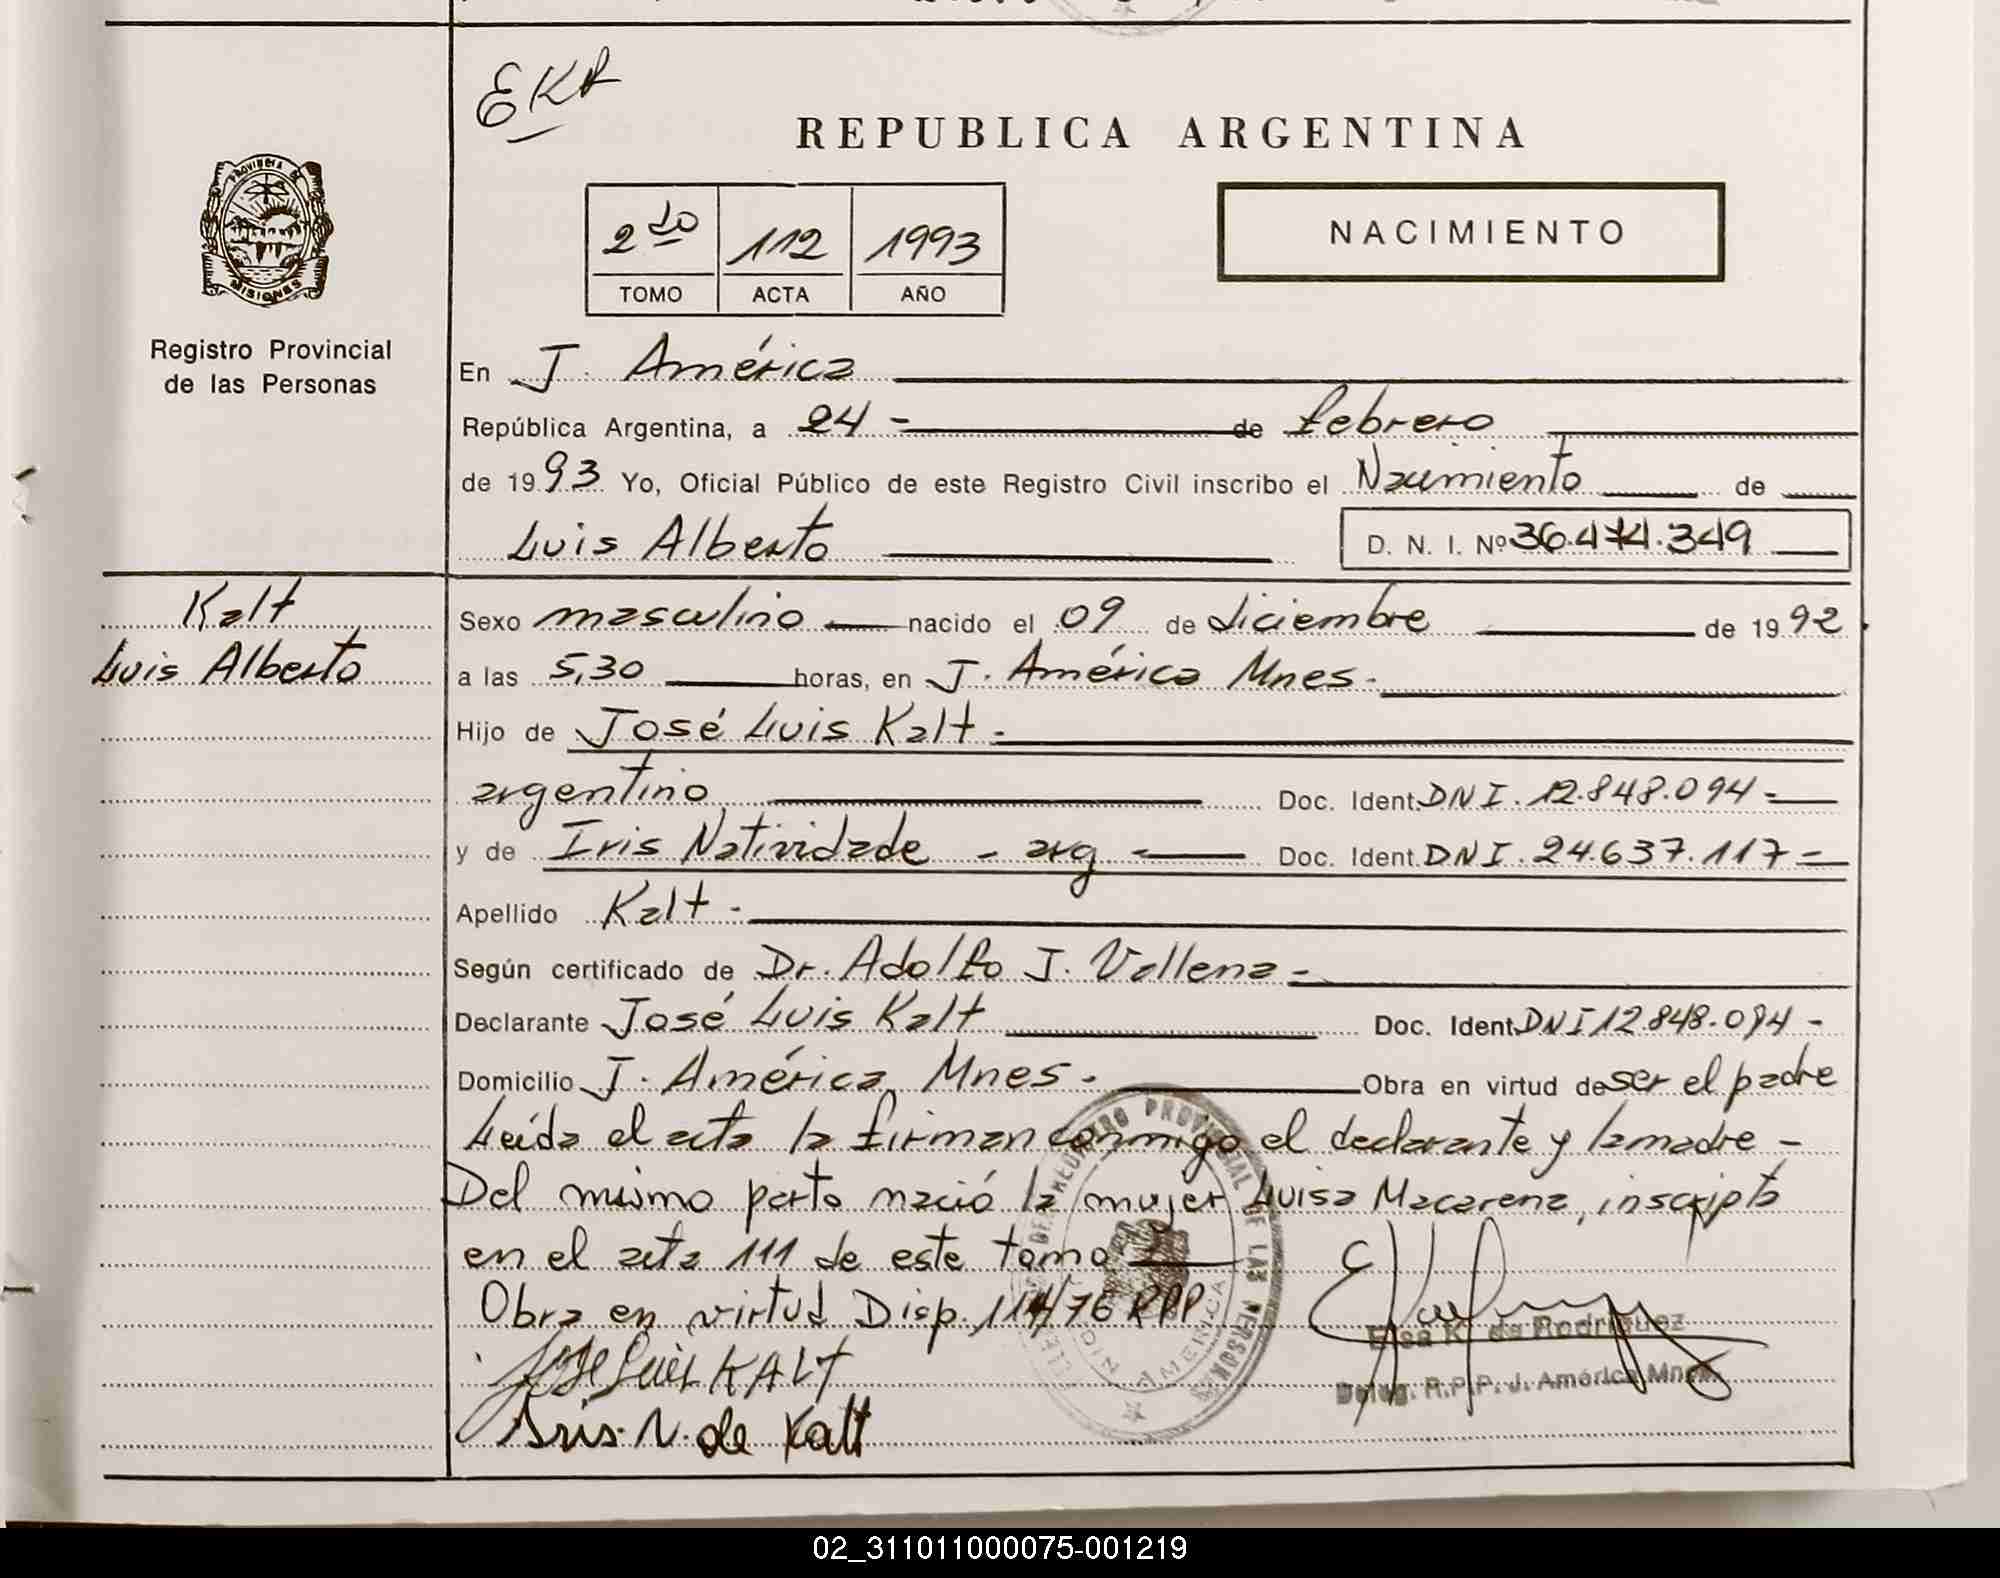 EKR
REPUBLICA ARGENTINA
PROVINCIA DE
MISIONES
2do 112 1993
TOMO ACTA AÑO
NACIMIENTO
Registro Provincial
de las Personas
En J. América
República Argentina, a 24 - de febrero
de 1993 Yo, Oficial Público de este Registro Civil inscribo el Nacimiento de
Luis Alberto D. N. I. Nº 36.474.349
Kalt
Luis Alberto
Sexo masculino nacido el 09 de diciembre de 1992
a las 5,30 horas, en J. América Mnes.
Hijo de José Luis Kalt.
argentino Doc. Ident. DNI. 12.848.094-
y de Iris Natividade - arg - Doc. Ident. DNI. 24.637.117-
Apellido Kalt.
Según certificado de Dr. Adolfo J. Vallena-
Declarante José Luis Kalt Doc. Ident. DNI 12.848.094-
Domicilio J. América, Mnes. Obra en virtud de ser el padre
Leída el acta la firman conmigo el declarante y la madre -
Del mismo parto nació la mujer Luisa Macarena, inscripta
en el acta 111 de este tomo
Obra en virtud Disp. 114/76 RPP
José Luis KALT
Iris. N. de Kalt
PROVINCIAL DE LAS PERSONAS
AMERICA
Elsa K. de Rodriguez
Deleg. R.P.P. J. América Mnes.
02_311011000075-001219